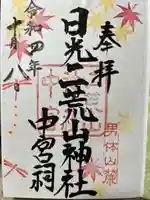 奉拝
日光二荒山神社
中宮祠
令和四年
十月八日
男体山麓